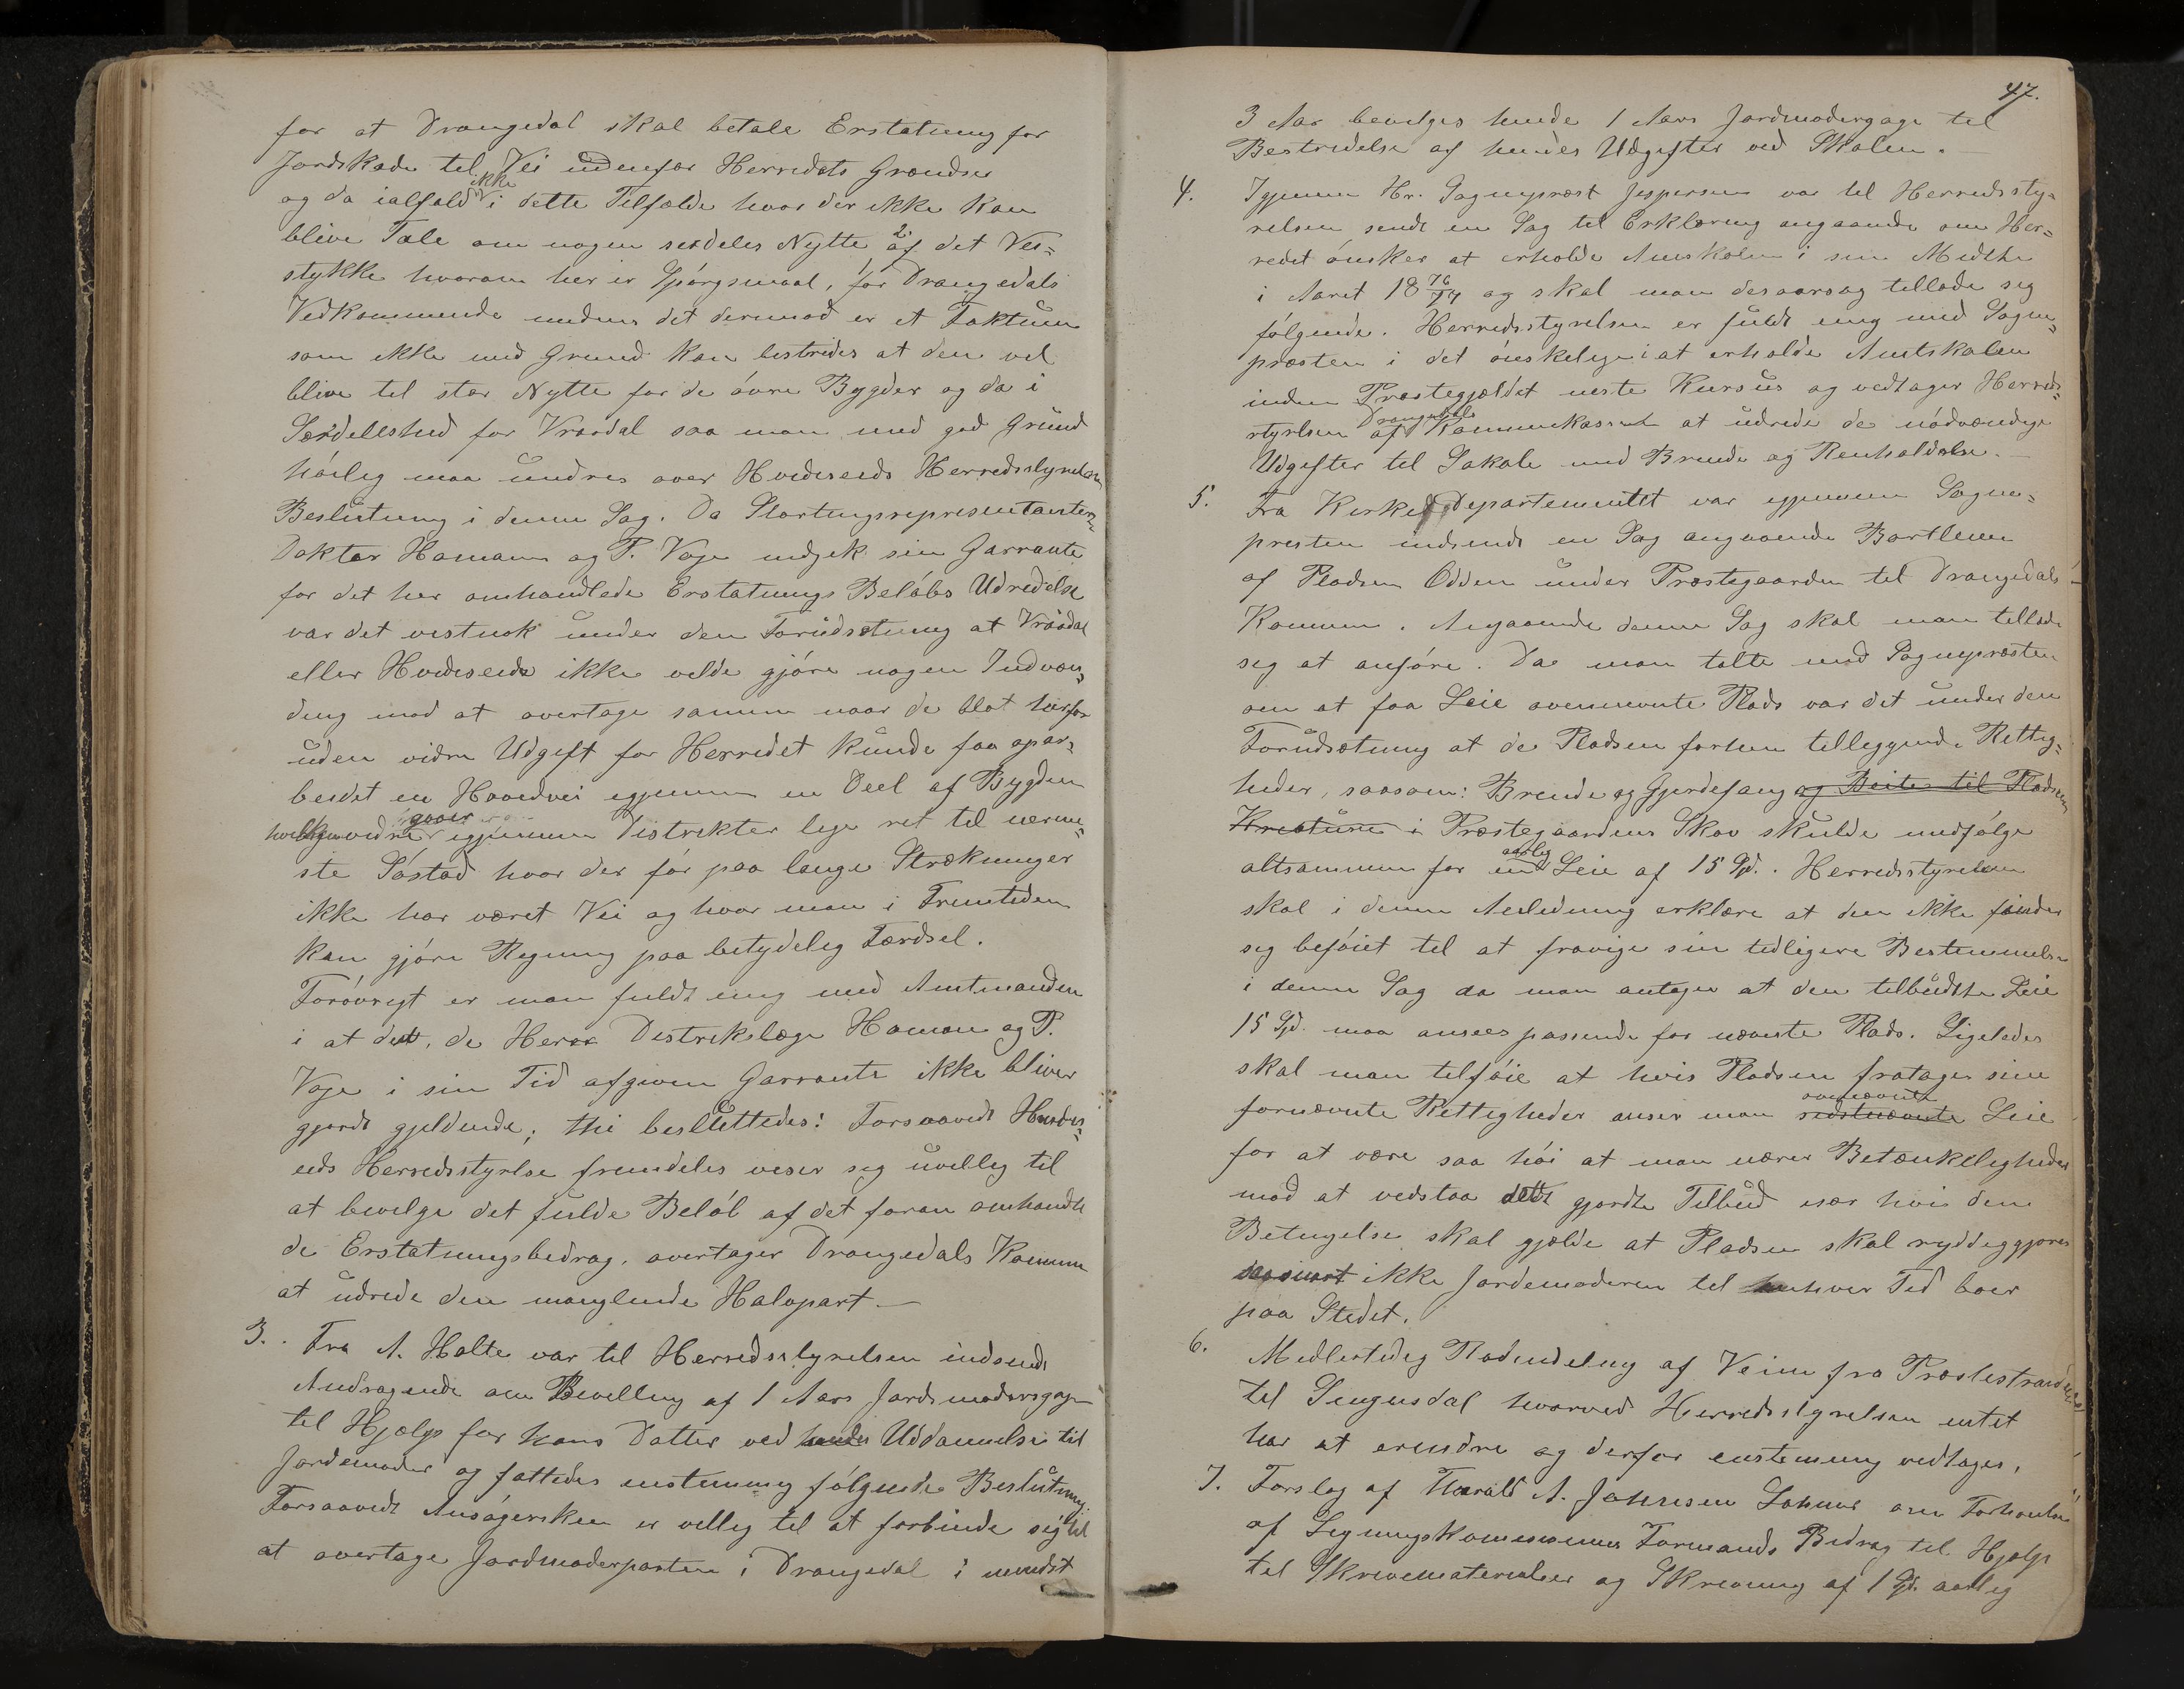 for at Drangedal skal betale Erstatning for
Jordskade til Vei udenfor Herredets Grændser
og da ialfald ikke i dette Tilfælde hvor der ikke kan
blive Tale om nogen serdeles Nytte af det Vei=
stykke hvorom her er Spørgsmaal, for Drangedals
Vedkommende medens det dermod er et Faktum
som ikke med Grund kan bestrides at den vel
blive til stor Nytte for de øvre Bygder og da i
Særdelleshed for Vraadal saa man med god Grund
høilig maa undres over Hvideseids Herredsstyrelses
Beslutning i denne Sag. Da Stortingsrepresentanterne
Doktor Homann og P. Voje indgik sin Garrante
for det her omhandlede Erstatnings Beløbs Udredelse
var det vistnok under den Forudsetning at Vraadal
eller Hvideseids ikke vilde gjøre nogen Indven=
ding mod at overtage samme naar de blot herfor
uden vidre Udgift for Herredet kunde faa opar=
beidet en Hovedvei igjennem en Deel af Bygden
hvilken vidre gaaer igjennem Distrikter lige ret til nerme=
ste Søstad hvor der før paa lange Strækninger
ikke har været Vei og hvor man i Fremtiden
kan gjøre Regning paa betydelig Færdsel.
Forøvrigt er man fuldt enig med Amtmanden
i at den, de Herrer Distrikslæge Homan og P.
Voje i sin Tid afgiven Garrante ikke bliver
gjordt gjeldende; thi besluttedes: Forsaavidt Hvides=
eids Herredsstyrelse fremdeles viser sig uvillig til
at bevilge det fulde Beløb af det foran omhandle
de Erstatningsbedrag, overtager Drangedals Komune
at udrede den manglende Halvpart.—
3. Fra A. Holte var til Herredsstyrelsen indsendt
Andragende om Bevilling af 1 Aars Jordmodersgage
til Hjælp for hans Datter ved hendes Uddannelse til
Jordemoder og fattedes enstemmig følgende Beslutning:
Forsaavidt Ansøgersken er villig til at forbinde sig til
at overtage Jordmoderposten i Drangedal i mindst
47.
3 Aar bevilges hende 1 Aars Jordmodergage til
Bestridelse af hendes Udgifter ved Skolen.
4. Igjennem Hr. Sognepræst Jespersen var til Herredssty=
relsen sendt en Sag til Erklæring angaaende om Her=
redet ønsker at erholde Amtskolen i sin Midte
i Aaret 18 76/77 og skal man desaarsag tillade sig
følgende. Herredsstyrelsen er fuldt enig med Sogne=
præsten i det ønskelige i at erholde Amtskolen
inden Præstegjældet neste Kursus og vedtager Herreds=
styrelsen af Drangedals Kommekassen at udrede de nødvendige
Udgifter til Lokale med Brende og Renholdelse.—
5. Fra Kirke Departementet var igjennem Sogne=
presten indsendt en Sag angaaende Bortleien
af Pladsen Odden under Præstegaarden til Drangedals
Komune. Angaaende denne Sag skal man tillade
sig at anføre. Da man talte med Sognepræsten
om at faa Leie ovennevnte Plads var det under den
Forudsætning at de Pladsen forhen tilleggende Rettig=
heder, saasom: Brende og Gjerdefang og Beite til Pladsens
Kreature i Præstegaardens Skov skulde medfølge
altsammen for en aarlig Leie af 15 Spd. Herredsstyrelsen
skal i denne Anledning erklære at den ikke finder
sig beføiet til at fravige sin tidligere Bestemmelse
i denne Sag da man antager at den tilbudte Leie
15 Spd. maa ansees passende for nævnte Plads. Ligeledes
skal man tilføie at hvis Pladsen fratages sine
fornævnte Rettigheder anser man sidstnævnte ovennævnte Leie
for at være saa høi at man nærer Betænkeligheder
mod at vedstaa dette gjordte Tilbud især hvis den
Betingelse skal gjælde at Pladsen skal ryddeggjøres
saasnart ikke Jordemoderen til enhver Tid boer
paa Stedet.
6. Midlertidig Rodeindeling af Veien fra Præstestranden
til Sengusdal hvorved Herredsstyrelsen intet
har at erindre og derfor enstemmig vedtages.
7. Forslag af Harald A. Johnsen om
af Ligningskomissionens Formands Bidrag til Hjælp
til Skrivematerialier og Skrivning af 1 Spd. aarlig